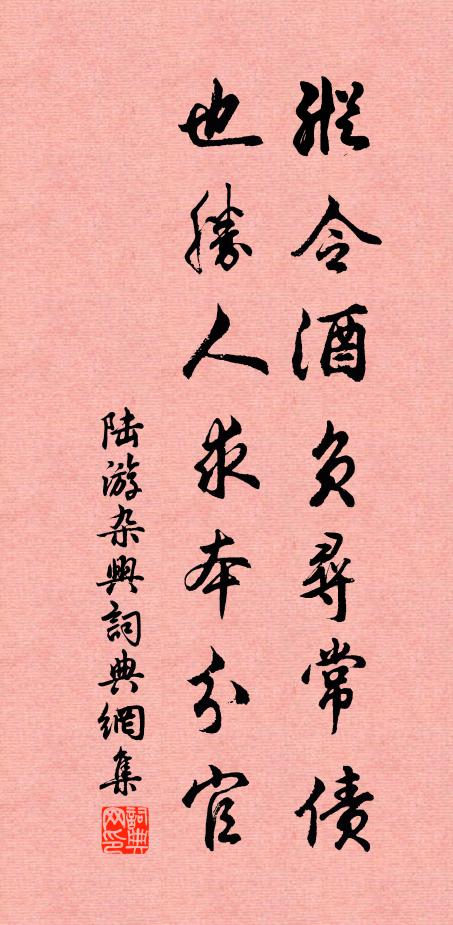 縱令酒负尋常债
也勝人求本分官
陆游杂興詞典網集
詞典网印